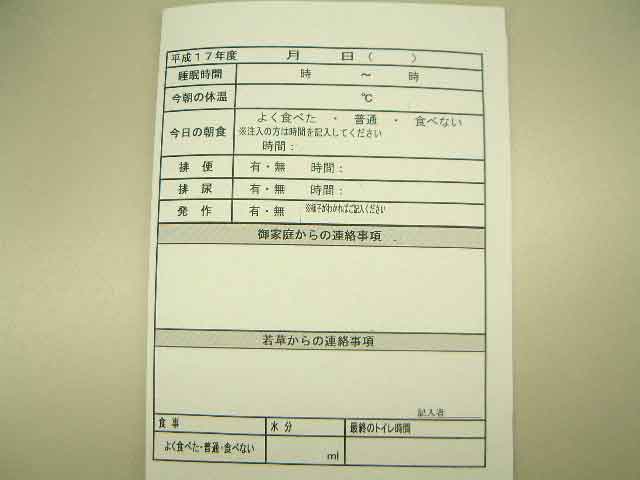 平成17年度　月　日（　）
睡眠時間　時　～　時
今朝の体温　℃
今日の朝食　よく食べた　・　普通　・　食べない
※注入の方は時間を記入してください
時間：
排　便　有・無　時間：
排　尿　有・無　時間：
発　作　有・無　※様子がわかればご記入ください
御家庭からの連絡事項
若草からの連絡事項
記入者
食　事　水　分　最終のトイレ時間
よく食べた・普通・食べない　ml